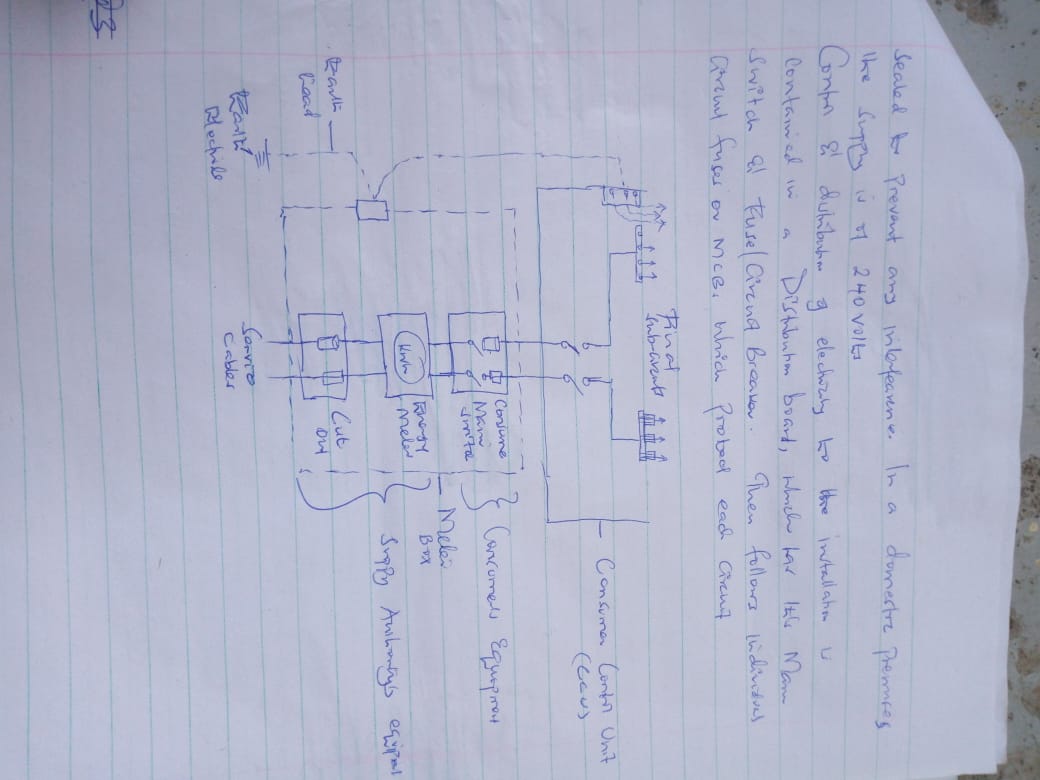 Sealed to Prevent any interference. In a domestic Premises
the supply is of 240 Volts
Control & distribution of electricity to the installation is
Contained in a Distribution board, which has the Main
Switch & Fuse/Circuit Breaker. Then follows individual
Circuit fuses or MCB, which Protect each Circuit
Final
Sub-circuits
Consumer Control Unit
(CCU)
Consumer
Main
Consumers Equipment
Meter
Box
Energy
Meter
kWh
Supply Authority's
Cut
Out
Service
Cables
Earth
Lead
Earth
Electrode